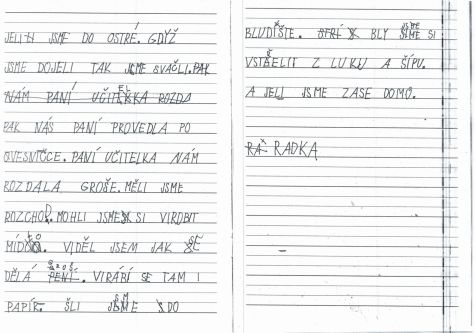 JELI JSME DO OSTRÉ. GDYŽ
JSME DOJELI TAK JSME SVAČLI. PAK
NÁM PANÍ UČITELKA ROZDA
PAK NÁS PANÍ PROVEDLA PO
VESNIČCE. PANÍ UČITELKA NÁM
ROZDALA GROŠE. MĚLI JSME
ROZCHOD. MOHLI JSME SI VIROBIT
MÍDLO. VIDĚL JSEM JAK SE
DĚLÁ. VIRÁBÍ SE TAM I
PAPÍR. ŠLI JSME DO
BLUDIŠTE. BLY JSME SI
VSTŘELIT Z LUKU A ŠÍPU.
A JELI JSME ZASE DOMŮ.
RADKA